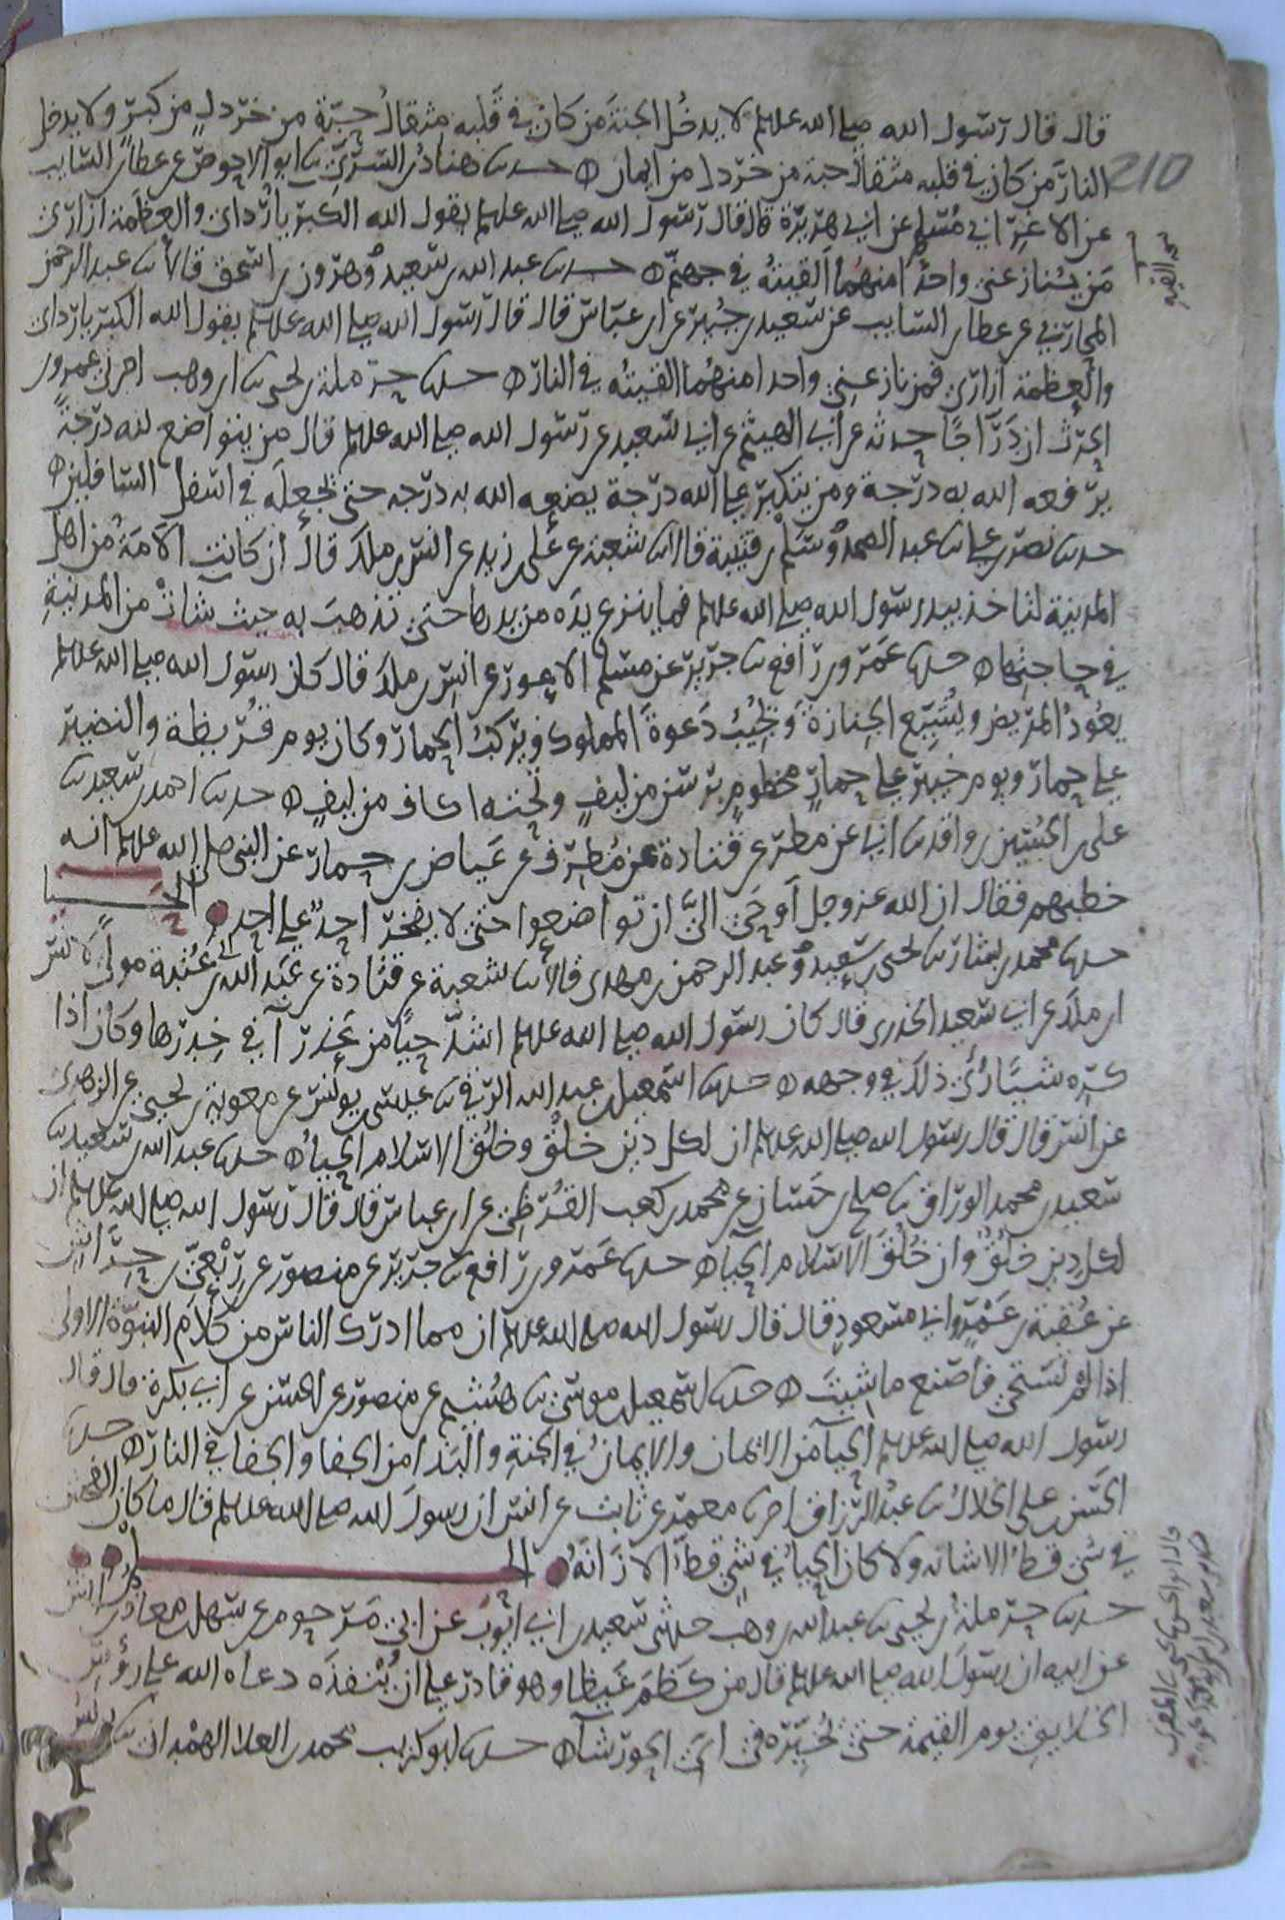 قال قال رسول الله صلى الله عليه وسلم لا يدخل الجنة من كان في قلبه مثقال حبة من خردل من كبر ولا يدخل
النار من كان في قلبه مثقال حبة من خردل من ايمان ه حدثنا هناد بن السري ثنا ابو الاحوص عن عطا بن السايب
210
عن الاغر ابي مسلم عن ابي هريرة قال قال رسول الله صلى الله عليه وسلم يقول الله الكبريا ردائي والعظمة ازاري
من ينازعني واحدا منهما القيته في جهنم ه حدثنا عبد الله بن سعيد وهرون بن اسحق قالا ثنا عبد الرحمن
المحاربي عن عطا بن السايب عن سعيد بن جبير عن ابن عباس قال قال رسول الله صلى الله عليه وسلم يقول الله الكبريا ردائي
والعظمة ازاري فمن نازعني واحدا منهما القيته في النار ه حدثنا حرملة بن يحيى ثنا ابن وهب اخبرني عمرو بن
الحرث ان دراجا حدثه عن ابي الهيثم عن ابي سعيد عن رسول الله صلى الله عليه وسلم قال من يتواضع لله درجة
يرفعه الله به درجة ومن يتكبر على الله درجة يضعه الله به درجه حتى يجعله في اسفل السافلين ه
حدثنا نصر بن علي ثنا عبد الصمد وسلم بن قتيبة قالا ثنا شعبة عن علي بن زيد عن انس بن ملك قال ان كانت الامة من اهل
المدينة لتاخذ بيد رسول الله صلى الله عليه وسلم فما ينزع يده من يدها حتى تذهب به حيث شات من المدينة
في حاجتها ه حدثنا عمرو بن رافع ثنا جرير عن مسلم الاعور عن انس بن ملك قال كان رسول الله صلى الله عليه وسلم
يعود المريض ويشيع الجنازة ويجيب دعوة المملوك ويركب الحمار وكان يوم قريظة والنضير
على حمار ويوم خيبر على حمار مخطوم برسن من ليف وتحته اكاف من ليف ه حدثنا احمد بن سعيد ثنا
علي بن الحسين بن واقد ثنا ابي عن مطر عن قتادة عن مطرف عن عياض بن حمار عن النبي صلى الله عليه وسلم انه
خطبهم فقال ان الله عز وجل اوحى الي ان تواضعوا حتى لا يفخر احد على احد الحيا
حدثنا محمد بن بشار ثنا يحيى بن سعيد وعبد الرحمن بن مهدي قالا ثنا شعبة عن قتادة عن عبد الله بن عتبة مولى لانس
ابن ملك عن ابي سعيد الخدري قال كان رسول الله صلى الله عليه وسلم اشد حيا من عذرآ في خدرها وكان اذا
كره شيا رئي ذلك في وجهه ه حدثنا اسمعيل بن عبد الله الرقي ثنا عيسى بن يونس عن معوية بن يحيى عن الزهري
عن انس قال قال رسول الله صلى الله عليه وسلم ان لكل دين خلق وخلق الاسلام الحيا ه حدثنا عبد الله بن سعيد ثنا
سعيد بن محمد الوراق ثنا صلح بن حسان عن محمد بن كعب القرظي عن ابن عباس قال قال رسول الله صلى الله عليه وسلم ان
لكل دين خلق وان خلق الاسلام الحيا ه حدثنا عمرو بن رافع ثنا جرير عن منصور عن ربعي بن حراش
عن عقبة بن عمرو ابي مسعود قال قال رسول الله صلى الله عليه وسلم ان مما ادرك الناس من كلام النبوة الاولى
اذا لم تستحي فاصنع ما شيت ه حدثنا اسمعيل بن موسى ثنا هشيم عن منصور عن الحسن عن ابي بكرة قال قال
رسول الله صلى الله عليه وسلم الحيا من الايمان والايمان في الجنة والبذا من الجفا والجفا في النار ه حدثنا
الحسن بن علي الخلال ثنا عبد الرزاق اخبرنا معمر عن ثابت عن انس ان رسول الله صلى الله عليه وسلم قال ما كان الفحش
في شي قط الا شانه ولا كان الحيا في شي قط الا زانه الحلم
حدثنا حرملة بن يحيى ثنا عبد الله بن وهب حدثني سعيد بن ابي ايوب عن ابي مرحوم عن سهل بن معاذ بن انس
عن ابيه ان رسول الله صلى الله عليه وسلم قال من كظم غيظا وهو قادر على ان ينفذه دعاه الله على رؤس
الخلايق يوم القيمة حتى يخيره في اي الحور شا ه حدثنا ابو كريب محمد بن العلا الهمداني ثنا يونس